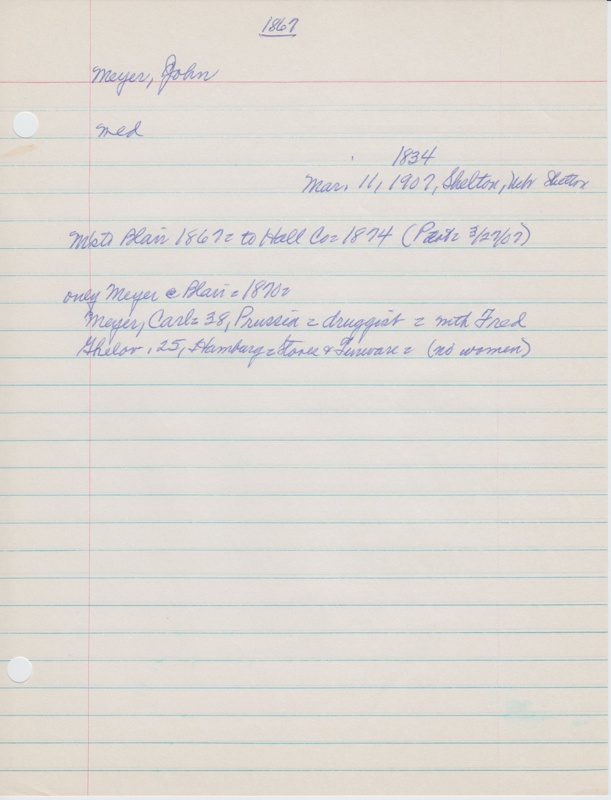 1867
Meyer, John
med
1834
Mar. 11, 1907, Shelton, Nebr
Blair 1867 = to Hall Co = 1874 (Past = 3/27/07)
only Meyer @ Blair = 1870 =
Meyer, Carl = 38, Prussia = druggist = with Fred
25, Hamburg = Stoves & Tinware = (no women)